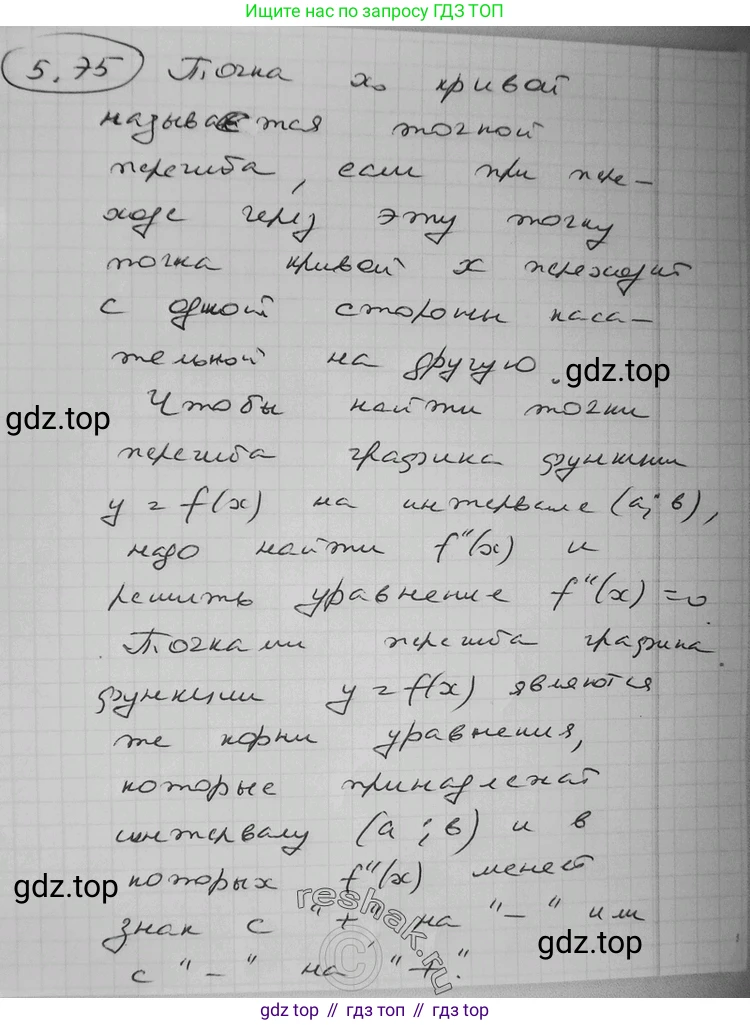 Ищите нас по запросу ГДЗ ТОП
5.75 Точка x₀ кривой
называется точкой
перегиба, если при пере-
ходе через эту точку
точка кривой x переходит
с одной стороны каса-
тельной на другую.
gdz.top
gdz.top
Чтобы найти точки
перегиба графика функции
y = f(x) на интервале (a; в),
надо найти f''(x) и
решить уравнение f''(x) = 0.
Точками перегиба графика
функции y = f(x) являются
те корни уравнения,
которые принадлежат
интервалу (a; в) и в
которых f''(x) меняет
gdz.top
знак с "+" на "–" или
с "–" на "+".
gdz.top
reshak.ru
gdz.top // гдз топ // gdz.top